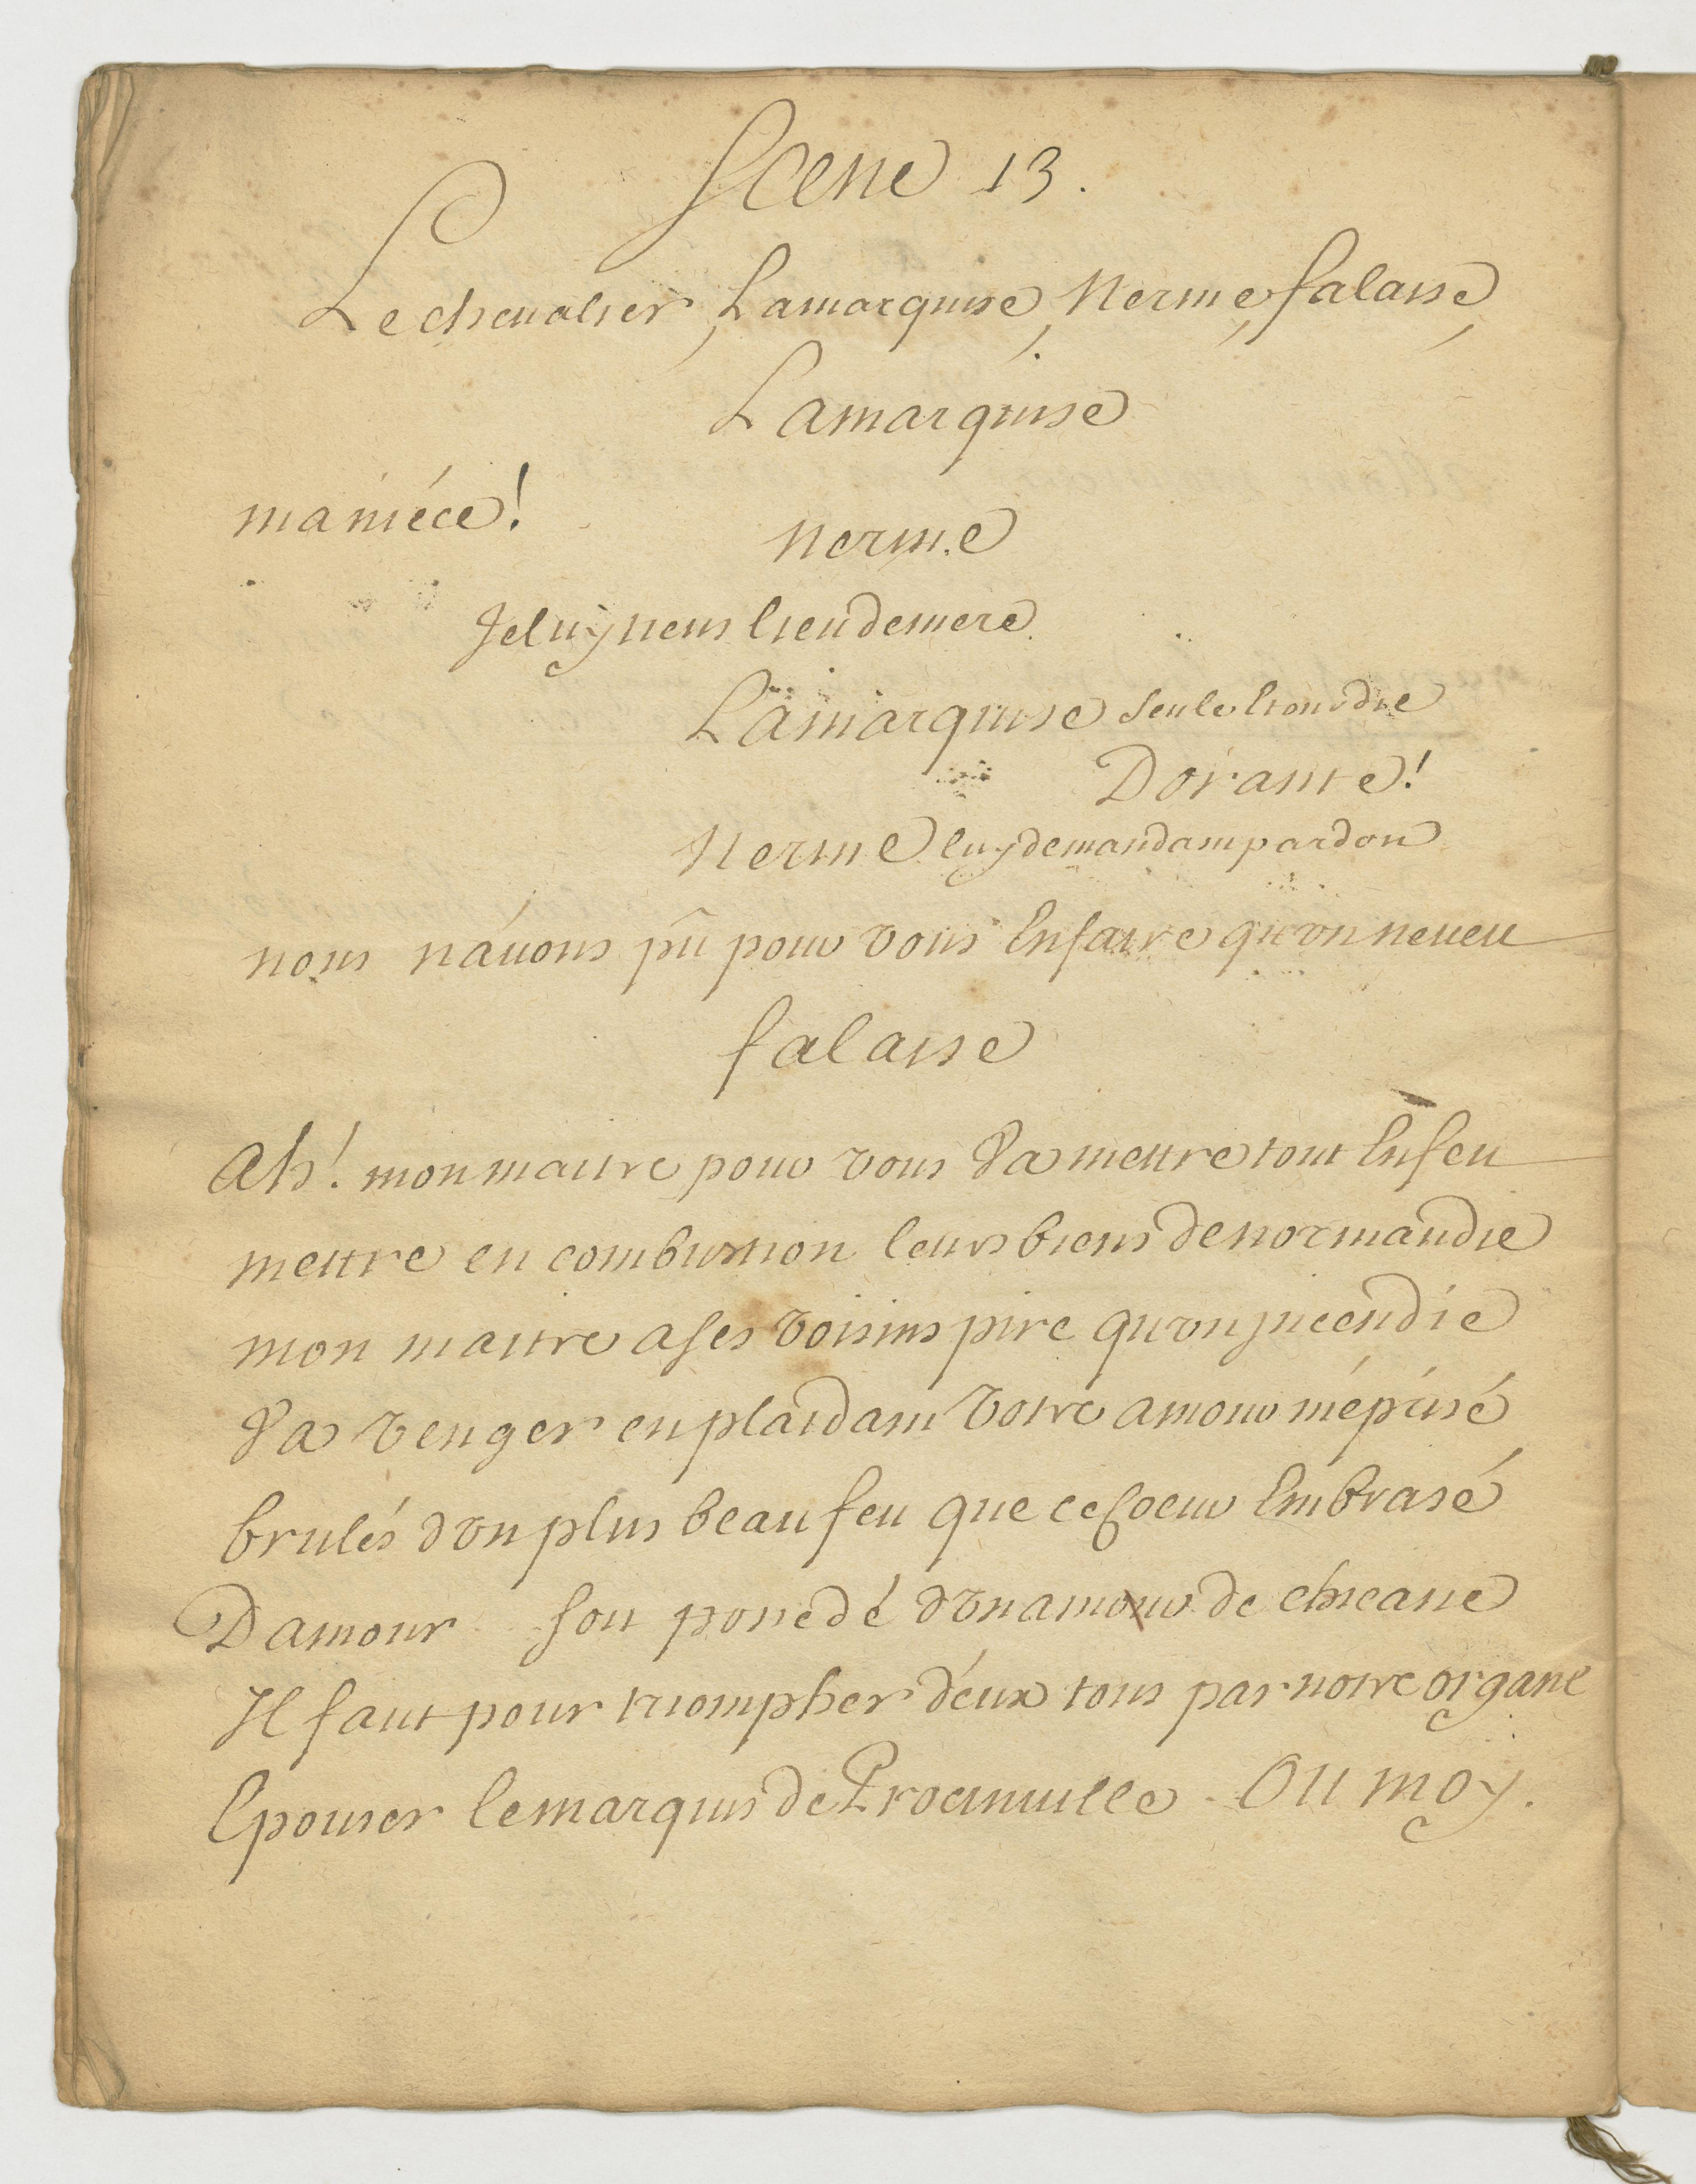 Scene 13.
Le chevalier, La marquise, Nerine, falaise,
La marquise
ma niéce!
Nerine
Je luy tiens lieu de mere
La marquise seule
Dorante!
Nerine luy demandant pardon
nous n'avons pû pour vous En faire qu'vn neveu
falaise
Ah! mon maitre pour vous va mettre tout En feu
mettre en combustion leurs biens de normandie
mon maitre a ses voisins pire qu'vn jncendie
va venger en plaidant votre amour méprisé
brulés d'vn plus beau feu que ce Coeur Embrasé
D'amour fou possedé d'vn amour de chicane
Il faut pour triompher d'eux tous par notre organe
Epouser le marquis de Procinville ou moy.